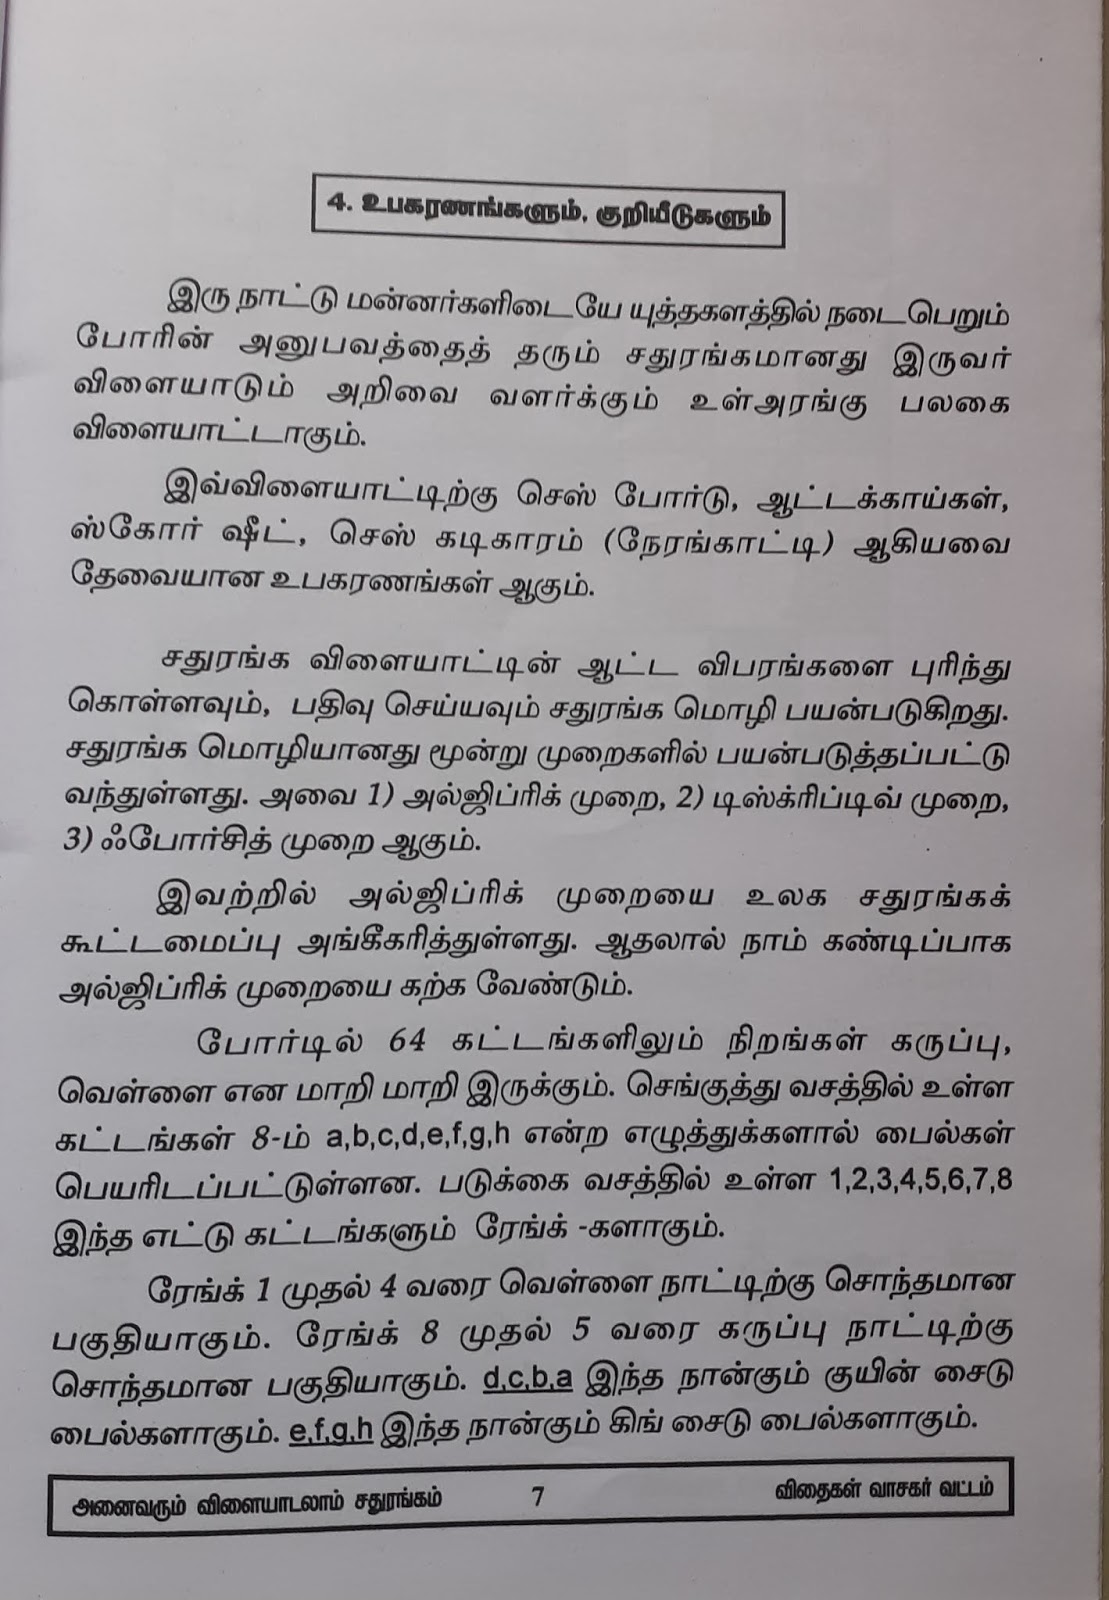 4. உபகரணங்களும், குறியீடுகளும்
இரு நாட்டு மன்னர்களிடையே யுத்தகளத்தில் நடைபெறும்
போரின் அனுபவத்தைத் தரும் சதுரங்கமானது இருவர்
விளையாடும் அறிவை வளர்க்கும் உள்அரங்கு பலகை
விளையாட்டாகும்.
இவ்விளையாட்டிற்கு செஸ் போர்டு, ஆட்டக்காய்கள்,
ஸ்கோர் ஷீட், செஸ் கடிகாரம் (நேரங்காட்டி) ஆகியவை
தேவையான உபகரணங்கள் ஆகும்.
சதுரங்க விளையாட்டின் ஆட்ட விபரங்களை புரிந்து
கொள்ளவும், பதிவு செய்யவும் சதுரங்க மொழி பயன்படுகிறது.
சதுரங்க மொழியானது மூன்று முறைகளில் பயன்படுத்தப்பட்டு
வந்துள்ளது. அவை 1) அல்ஜிப்ரிக் முறை, 2) டிஸ்க்ரிப்டிவ் முறை,
3) ஃபோர்சித் முறை ஆகும்.
இவற்றில் அல்ஜிப்ரிக் முறையை உலக சதுரங்கக்
கூட்டமைப்பு அங்கீகரித்துள்ளது. ஆதலால் நாம் கண்டிப்பாக
அல்ஜிப்ரிக் முறையை கற்க வேண்டும்.
போர்டில் 64 கட்டங்களிலும் நிறங்கள் கருப்பு,
வெள்ளை என மாறி மாறி இருக்கும். செங்குத்து வசத்தில் உள்ள
கட்டங்கள் 8-ம் a,b,c,d,e,f,g,h என்ற எழுத்துக்களால் பைல்கள்
பெயரிடப்பட்டுள்ளன. படுக்கை வசத்தில் உள்ள 1,2,3,4,5,6,7,8
இந்த எட்டு கட்டங்களும் ரேங்க் -களாகும்.
ரேங்க் 1 முதல் 4 வரை வெள்ளை நாட்டிற்கு சொந்தமான
பகுதியாகும். ரேங்க் 8 முதல் 5 வரை கருப்பு நாட்டிற்கு
சொந்தமான பகுதியாகும். d,c,b,a இந்த நான்கும் குயின் சைடு
பைல்களாகும். e,f,g,h இந்த நான்கும் கிங் சைடு பைல்களாகும்.
அனைவரும் விளையாடலாம் சதுரங்கம் 7 விதைகள் வாசகர் வட்டம்